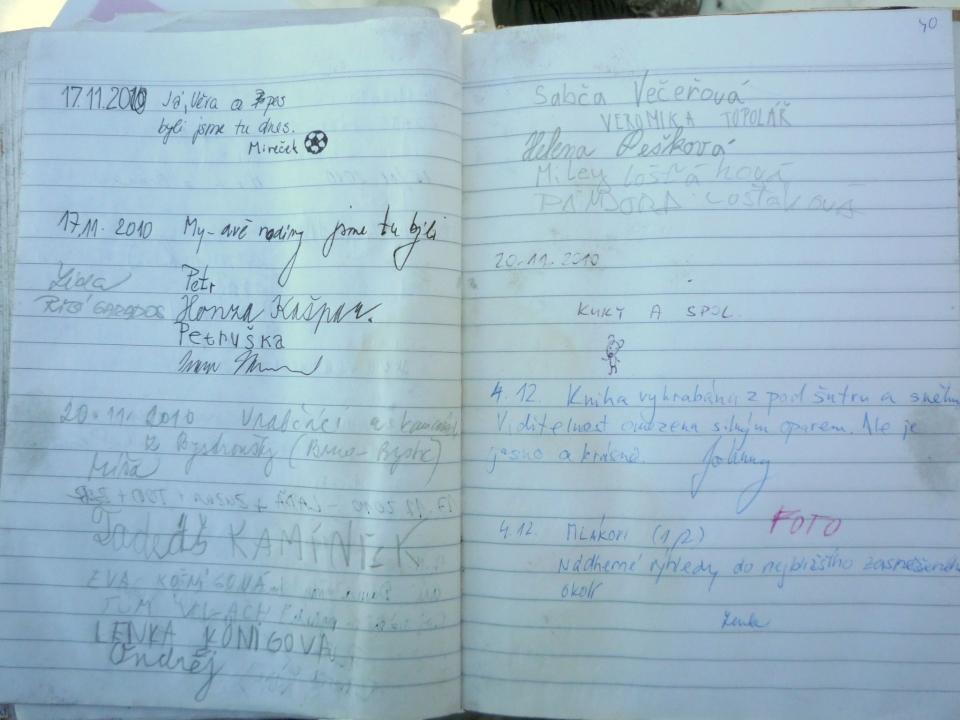 17.11.2010 Já, Věra a Pepas
byli jsme tu dnes.
Mireček
17.11. 2010 My - dvě rodiny jsme tu byli
Lída Petr
Honza Kašpar.
Petruška
20.11. 2010 Vrabčáci
z Bystroušky (Brno-Bystrc)
Míša
Tadeáš KAMÍNEK
EVA KÖNIGOVÁ
TOM VLACH
LENKA KÖNIGOVÁ
Ondřej
40
Sabča Večeřová
VERONIKA TOPOLÁŘ
Helena Pešková
Miley Lošťáková
PANDORA Lošťáková
20.11.2010
KUKY A SPOL.
4.12. Kniha vyhrabána z pod šutru a sněhu
Viditelnost omezena silným oparem. Ale je
jasno a krásně. Johnny
FOTO
4.12. MLAKOVI (1/2)
Nádherné výhledy do nejbližšího zasněženého
okolí
Lenka